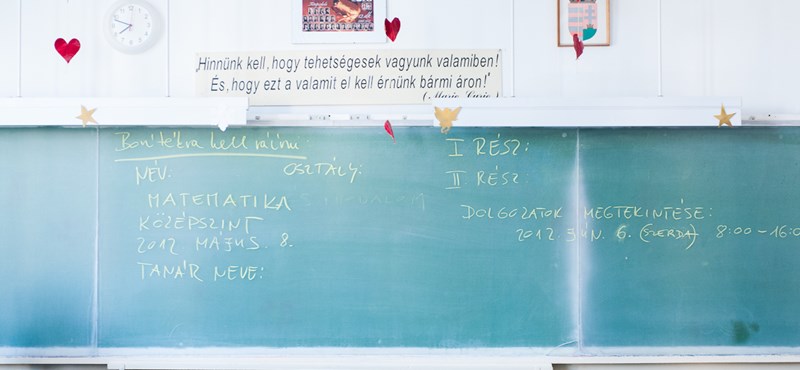 „Hinnünk kell, hogy tehetségesek vagyunk valamiben!
És, hogy ezt a valamit el kell érnünk bármi áron!"
(Marie Curie)
Borítékra kell ráírni:
NÉV: OSZTÁLY:
MATEMATIKA
KÖZÉPSZINT
2012 MÁJUS 8.
TANÁR NEVE:
I RÉSZ:
II RÉSZ:
DOLGOZATOK MEGTEKINTÉSE:
2012. JÚN. 6. (SZERDA) 8:00 - 16:0